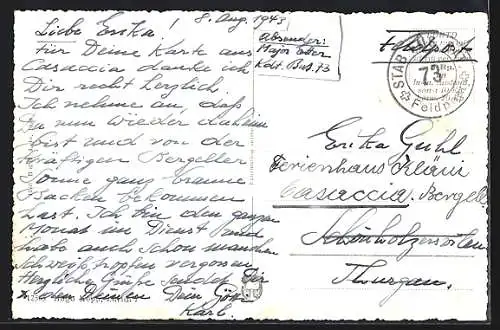 8. Aug. 1943
Liebe Erika!
Für Deine Karte aus
Casaccia danke ich
Dir recht herzlich.
Ich nehme an, daß
Du nun wieder daheim
bist und von der
kräftigen Bergeller
Sonne ganz braune
Backen bekommen
hast. Ich bin den ganzen
Monat im Dienst und
habe auch schon manchen
Schweißtropfen vergossen.
Herzliche Grüße sendet Dir
& den Deinen Dein Götti
Karl.
Absender:
Major Etter
Kdt. Bat. 73
Feldpost
STAB
73
Feldpost
Erika Guhl
Ferienhaus Kläui
Casaccia, Bergell
Schönholzerswilen
Thurgau.